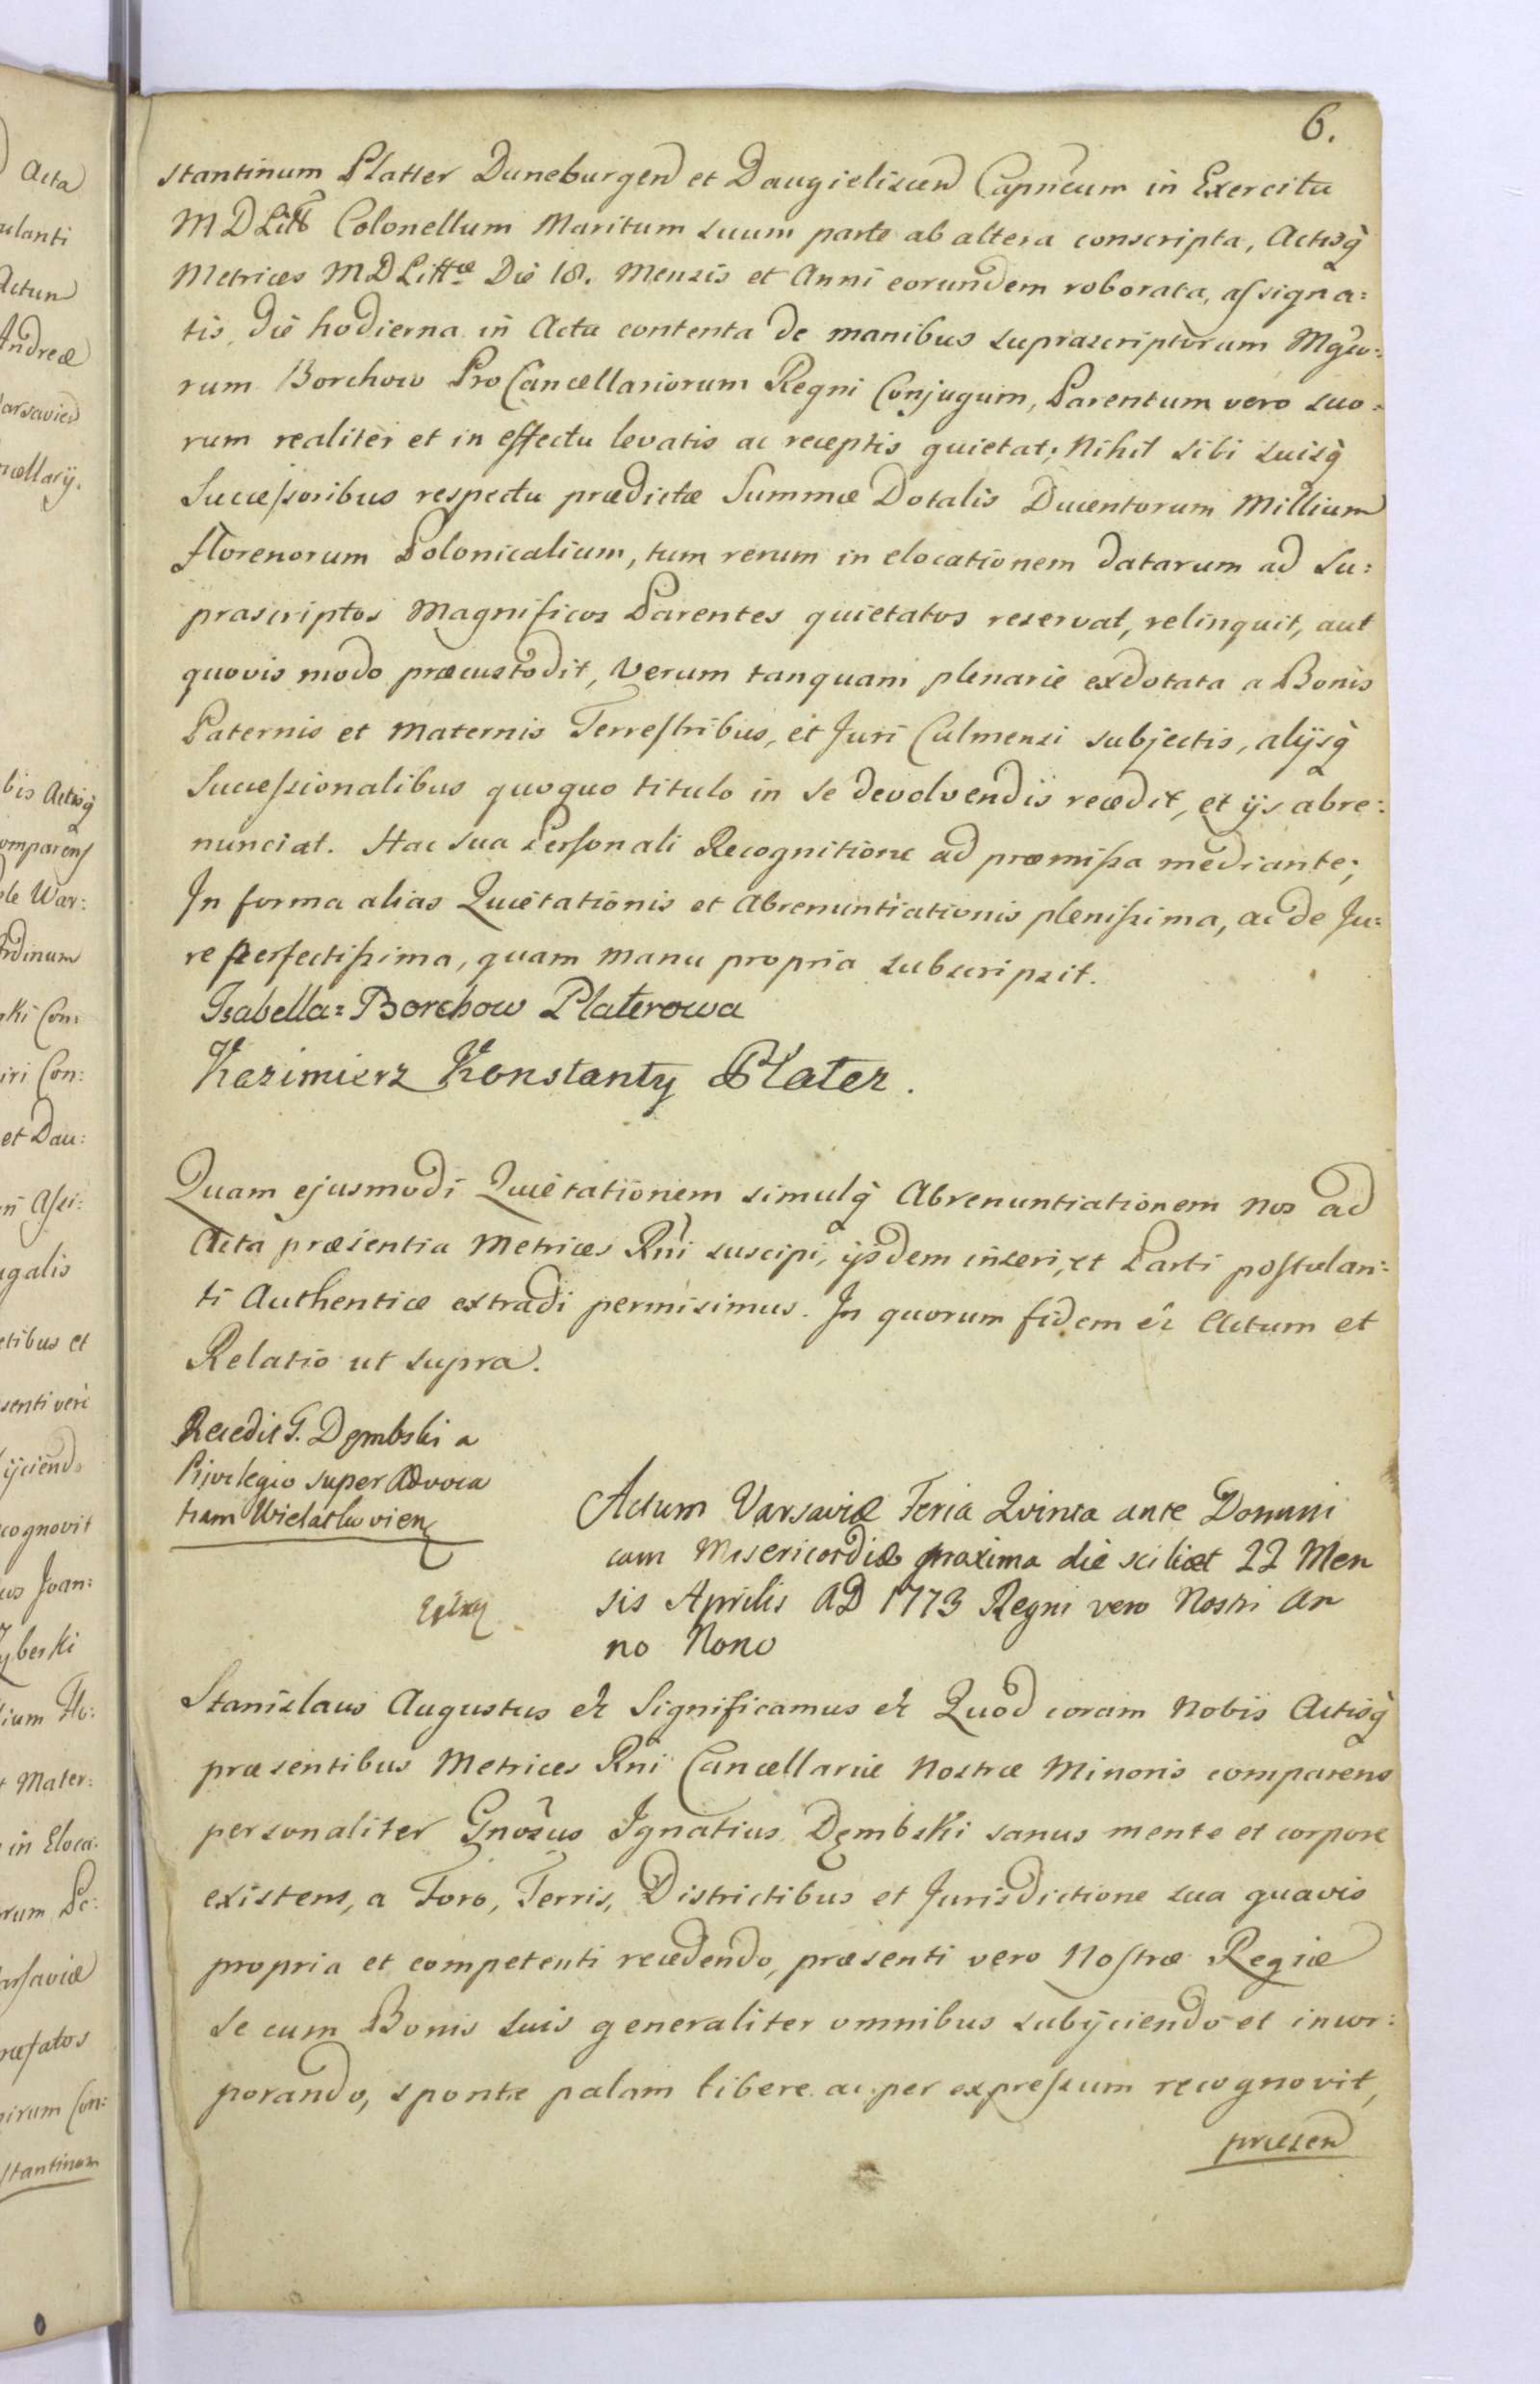 6.
stantinum Platter Duneburgen et Daugieliscen Capneum in Exercitu
M D Litt Colonellum Maritum suum parte ab altera conscripta, Actisq̀
Metrices M D Littæ Die 18. Mensis et Anni eorundem roborata, assigna:
tis, die hodierna in Acta contenta de manibus suprascriptorum Mgco:
rum Borchow ProCancellariorum Regni Conjugum, Parentum vero suo:
rum realiter et in effectu levatis ac receptis quietat; Nihil sibi suisq̀
Successoribus respectu prædictæ Summæ Dotalis Ducentorum Millium
florenorum Polonicalium, tum rerum in elocationem datarum ad Su:
prascriptos Magnificos Parentes quietatos reservat, relinquit, aut
quovis modo præcustodit, Verum tanquam plenarie exdotata a Bonis
Paternis et Maternis Terrestribus, et Juri Culmensi subjectis, alijsq̀
Successionalibus quoquo titulo in se devolvendis recedit, et ijs abre:
nunciat. Hac sua Personali Recognitione ad præmissa mediante;
In forma alias Quietationis et Abrenuntiationis plenissima, ac de Ju:
re perfectissima, quam manu propria subscripsit.
Isabella=Borchow Platerowa
Kazimierz Konstanty Plater.
Quam ejusmodi Quietationem simulq̀ Abrenuntiationem Nos ad
Acta præsentia Metrices Rni suscipi, ijsdem inseri, et Parti postulan:
ti Authentice extradi permisimus. In quorum fidem etc Actum et
Relatio ut supra.
Recedit G. Dęmbski a
Privilegio super Advoca
tiam Wielatkovien
Actum Varsaviæ Feria Qvinta ante Domini
cam Misericordiæ proxima die scilicet 22 Men
sis Aprilis AD 1773 Regni vero Nostri An
no Nono
Stanislaus Augustus etc Significamus etc Quod coram Nobis Actisq̀
præsentibus Metrices Rni Cancellariæ Nostræ Minoris comparens
personaliter Gnosus Ignatius Dęmbski sanus mente et corpore
existens, a Foro, Terris, Districtibus et Jurisdictione sua quavis
propria et competenti recedendo, præsenti vero Nostræ Regiæ
se cum Bonis suis generaliter omnibus subijciendo et incor:
porando, sponte palam libere ac per expressum recognovit,
præsen